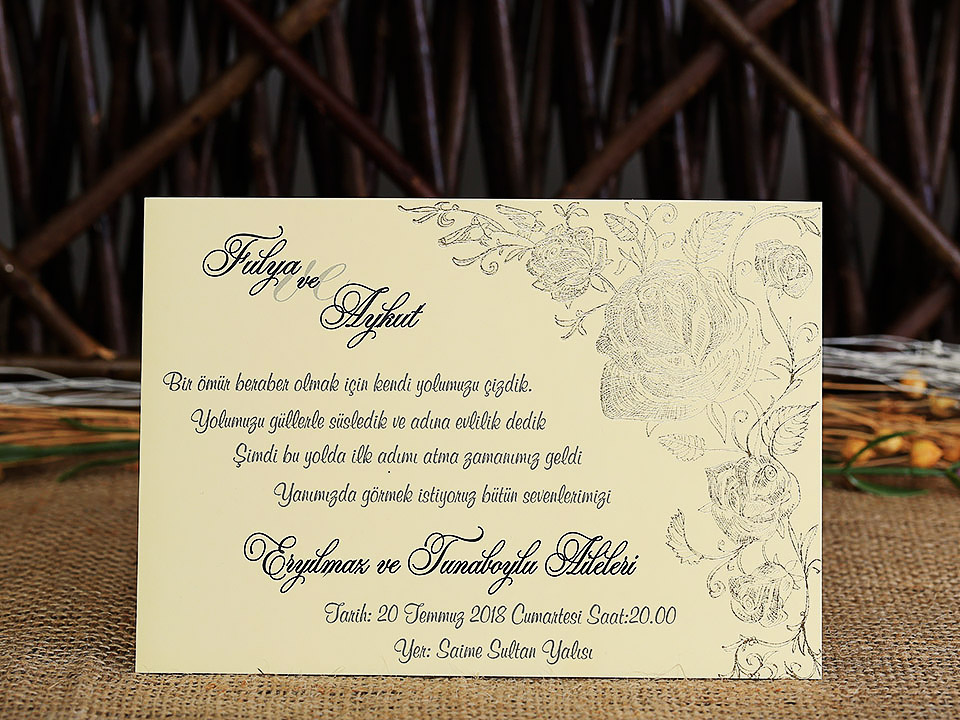 Fulya
ve
Aykut
Bir ömür beraber olmak için kendi yolumuzu çizdik.
Yolumuzu güllerle süsledik ve adına evlilik dedik
Şimdi bu yolda ilk adımı atma zamanımız geldi
Yanımızda görmek istiyoruz bütün sevenlerimizi
Eryılmaz ve Tunaboylu Aileleri
Tarih: 20 Temmuz 2018 Cumartesi Saat:20.00
Yer: Saime Sultan Yalısı